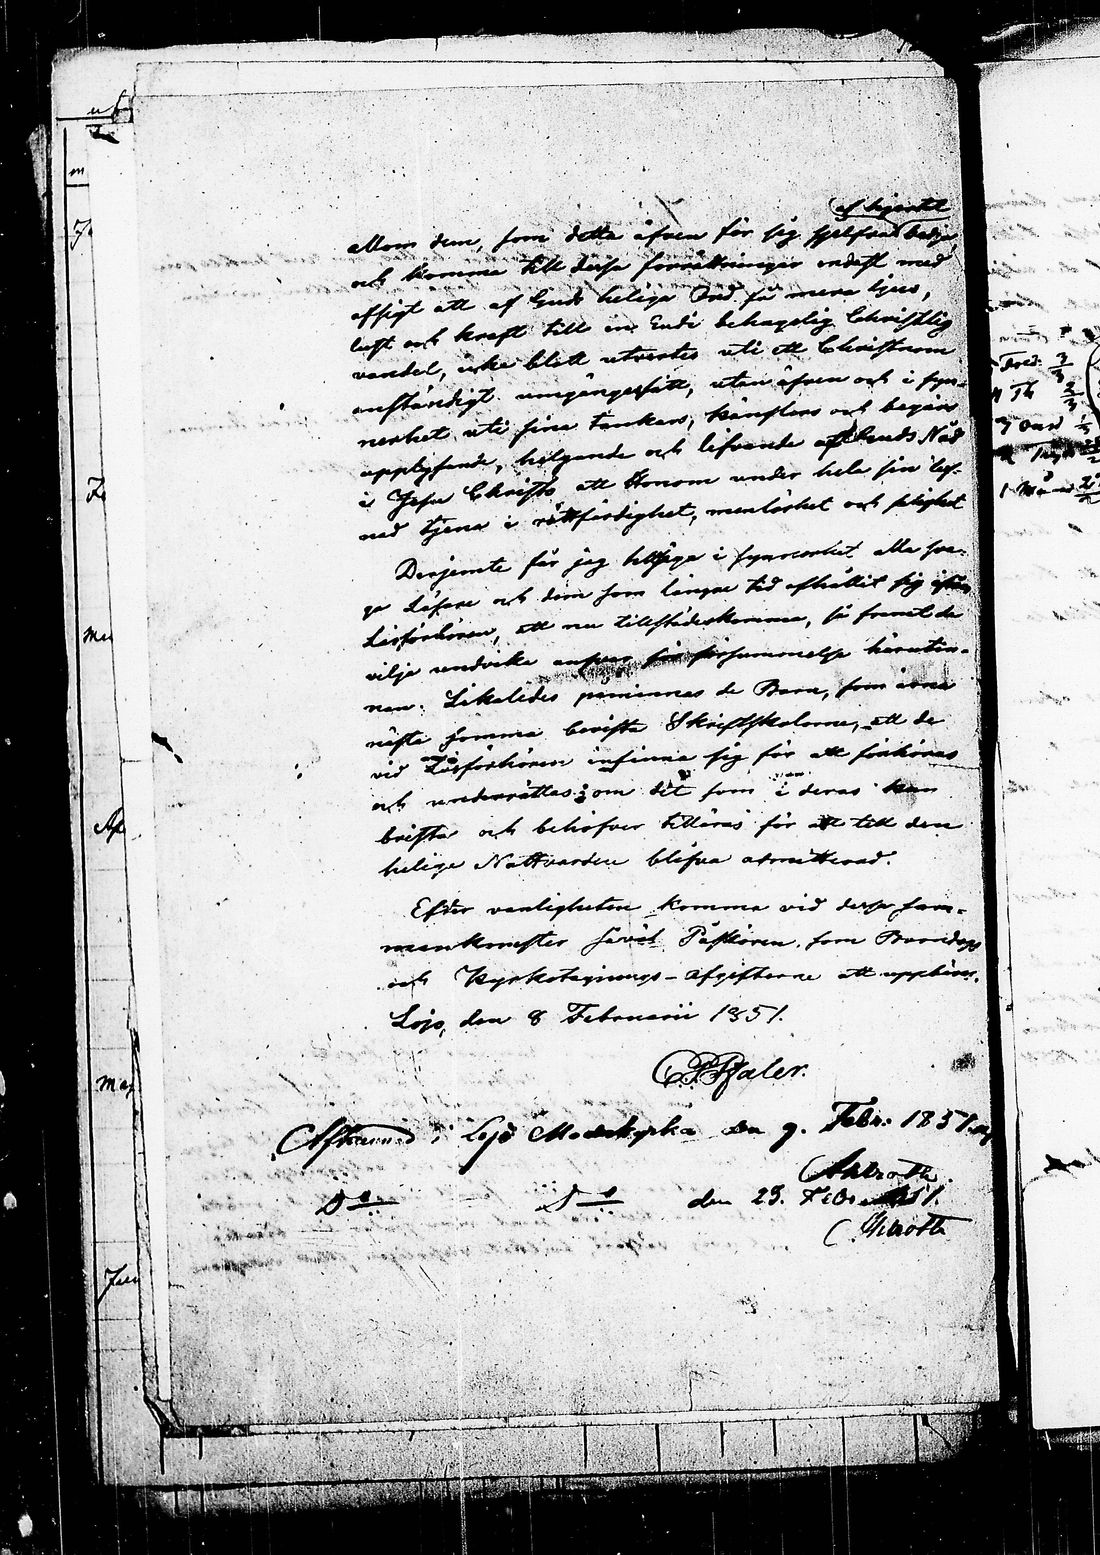 af hjertat
allom dem, som detta äfven för sig sjelfva bedja,
och komma till dessa förrättningar endast med
afsigt att af Guds heliga Ord få mera ljus,
lust och kraft till en Gudi behagelig Christlig
vandel, icke blott utvertes uti ett Christnom
anständigt umgängessätt, utan äfven och i syn-
nerhet uti sina tankars, känslors och begärs
upplysande, helgande och lifvande af Guds Nåd
i Jesu Christo att Honom under hela sin lef-
nad tjena i rättfärdighet, menlöshet och helighet
Desjemte får jag i synnerhet alla sva-
ga Läsare och dem som längre tid afhållit sig ifrån
Läsförhören, att nu tillstädeskomma, så framt de
vilja undvika ansvar för försummelse härutin-
nan. Likaledes påminnas de Barn, som ärna
nästa sommar bevista Skriftskolorne, att de
vid Läsförhören infinna sig för att förhöras
och underrättas om det som i deras kun
brister och behöfver tilläras för att till den
heliga Nattvarden blifva admitterad.
Efter vanligheten komma vid dessa sam-
mankomster såväl Påskören, som Barndops
och Kyrkotagnings-afgifterne att uppbäras.
Lojo, den 8 Februarii 1851.
Afkunnad i Lojo Moderkyrka den 9. Febr. 1851.
Ahlroth
Do Do den 23. Febr. 1851.
Ahlroth
Fred.
Th
Ons
Mån